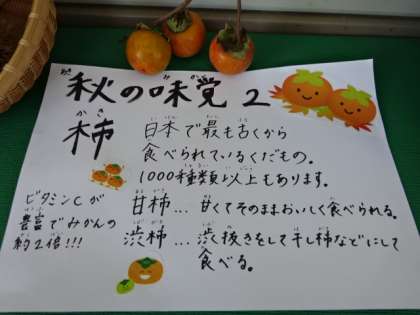 秋の味覚 2
柿
日本で最も古くから
食べられているくだもの。
1000種類以上もあります。
甘柿...甘くてそのままおいしく食べられる。
渋柿...渋抜きをして干し柿などにして
食べる。
ビタミンCが
豊富でみかんの
約2倍!!!